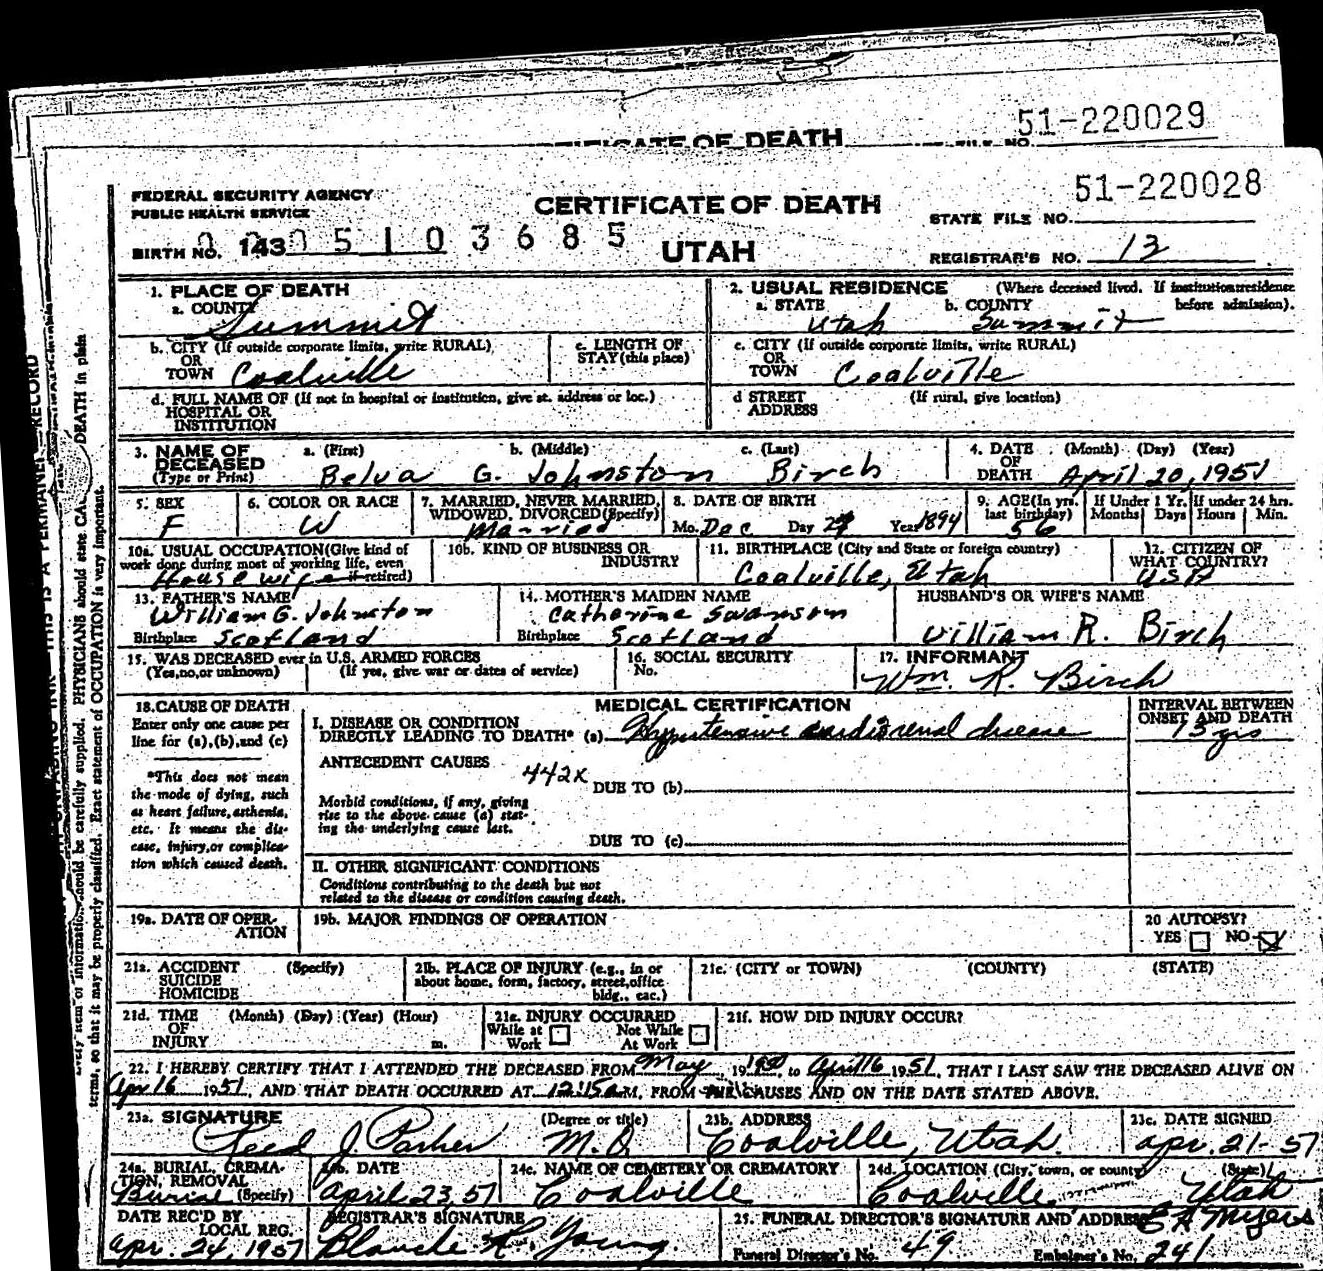 51-220029
CERTIFICATE OF DEATH
51-220028
FEDERAL SECURITY AGENCY
PUBLIC HEALTH SERVICE
CERTIFICATE OF DEATH
STATE FILE NO.
BIRTH NO. 143 0 5 1 0 3 6 8 5
UTAH
REGISTRAR'S NO. 13
1. PLACE OF DEATH
a. COUNTY Summit
2. USUAL RESIDENCE (Where deceased lived. If institution: residence before admission).
a. STATE Utah b. COUNTY Summit
b. CITY (If outside corporate limits, write RURAL) OR TOWN Coalville
c. LENGTH OF STAY (this place)
c. CITY (If outside corporate limits, write RURAL) OR TOWN Coalville
d. FULL NAME OF (If not in hospital or institution, give st. address or loc.) HOSPITAL OR INSTITUTION
d STREET ADDRESS (If rural, give location)
3. NAME OF DECEASED (Type or Print) a. (First) b. (Middle) c. (Last)
Belva G. Johnston Birch
4. DATE OF DEATH (Month) (Day) (Year)
April 20, 1951
5. SEX
F
6. COLOR OR RACE
W
7. MARRIED, NEVER MARRIED, WIDOWED, DIVORCED (Specify)
Married
8. DATE OF BIRTH
Mo. Dec Day Year 1894
9. AGE (In yrs. last birthday) 56
If Under 1 Yr. Months Days
If under 24 hrs. Hours Min.
10a. USUAL OCCUPATION (Give kind of work done during most of working life, even if retired)
Housewife
10b. KIND OF BUSINESS OR INDUSTRY
11. BIRTHPLACE (City and State or foreign country)
Coalville, Utah
12. CITIZEN OF WHAT COUNTRY?
USA
13. FATHER'S NAME
William G. Johnston
Birthplace Scotland
14. MOTHER'S MAIDEN NAME
Catherine Swanson
Birthplace Scotland
HUSBAND'S OR WIFE'S NAME
William R. Birch
15. WAS DECEASED ever in U.S. ARMED FORCES
(Yes, no, or unknown) (If yes, give war or dates of service)
16. SOCIAL SECURITY No.
17. INFORMANT
Wm. R. Birch
18. CAUSE OF DEATH
Enter only one cause per line for (a), (b), and (c)
*This does not mean the mode of dying, such as heart failure, asthenia, etc. It means the disease, injury, or complication which caused death.
MEDICAL CERTIFICATION
INTERVAL BETWEEN ONSET AND DEATH
I. DISEASE OR CONDITION DIRECTLY LEADING TO DEATH* (a) Hypertensive cardiorenal disease
yrs
ANTECEDENT CAUSES
442X
DUE TO (b)
Morbid conditions, if any, giving rise to the above cause (a) stating the underlying cause last.
DUE TO (c)
II. OTHER SIGNIFICANT CONDITIONS
Conditions contributing to the death but not related to the disease or condition causing death.
19a. DATE OF OPERATION
19b. MAJOR FINDINGS OF OPERATION
20 AUTOPSY?
YES NO
21a. ACCIDENT SUICIDE HOMICIDE (Specify)
21b. PLACE OF INJURY (e.g., in or about home, form, factory, street, office bldg., eac.)
21c. (CITY or TOWN) (COUNTY) (STATE)
21d. TIME OF INJURY (Month) (Day) (Year) (Hour) m.
21e. INJURY OCCURRED
While at Work Not While At Work
21f. HOW DID INJURY OCCUR?
22. I HEREBY CERTIFY THAT I ATTENDED THE DECEASED FROM May 19, to April 16 1951, THAT I LAST SAW THE DECEASED ALIVE ON
Apr 16 1951, AND THAT DEATH OCCURRED AT 12:15 a M, FROM THE CAUSES AND ON THE DATE STATED ABOVE.
23a. SIGNATURE (Degree or title)
Reed J. Parker M.D.
23b. ADDRESS
Coalville, Utah
23c. DATE SIGNED
apr. 21-51
24a. BURIAL, CREMATION, REMOVAL (Specify)
Burial
24b. DATE
April 23, 51
24c. NAME OF CEMETERY OR CREMATORY
Coalville
24d. LOCATION (City, town, or county) (State)
Coalville Utah
DATE REC'D BY LOCAL REG.
apr. 24, 1951
REGISTRAR'S SIGNATURE
Blanche R. Young
25. FUNERAL DIRECTOR'S SIGNATURE AND ADDRESS
E A Myers
Funeral Director's No. 49 Embalmer's No. 241
THIS IS A PERMANENT RECORD
information should be carefully supplied. PHYSICIANS should state CAUSE OF DEATH in plain
terms, so that it may be properly classified. Exact statement of OCCUPATION is very important.